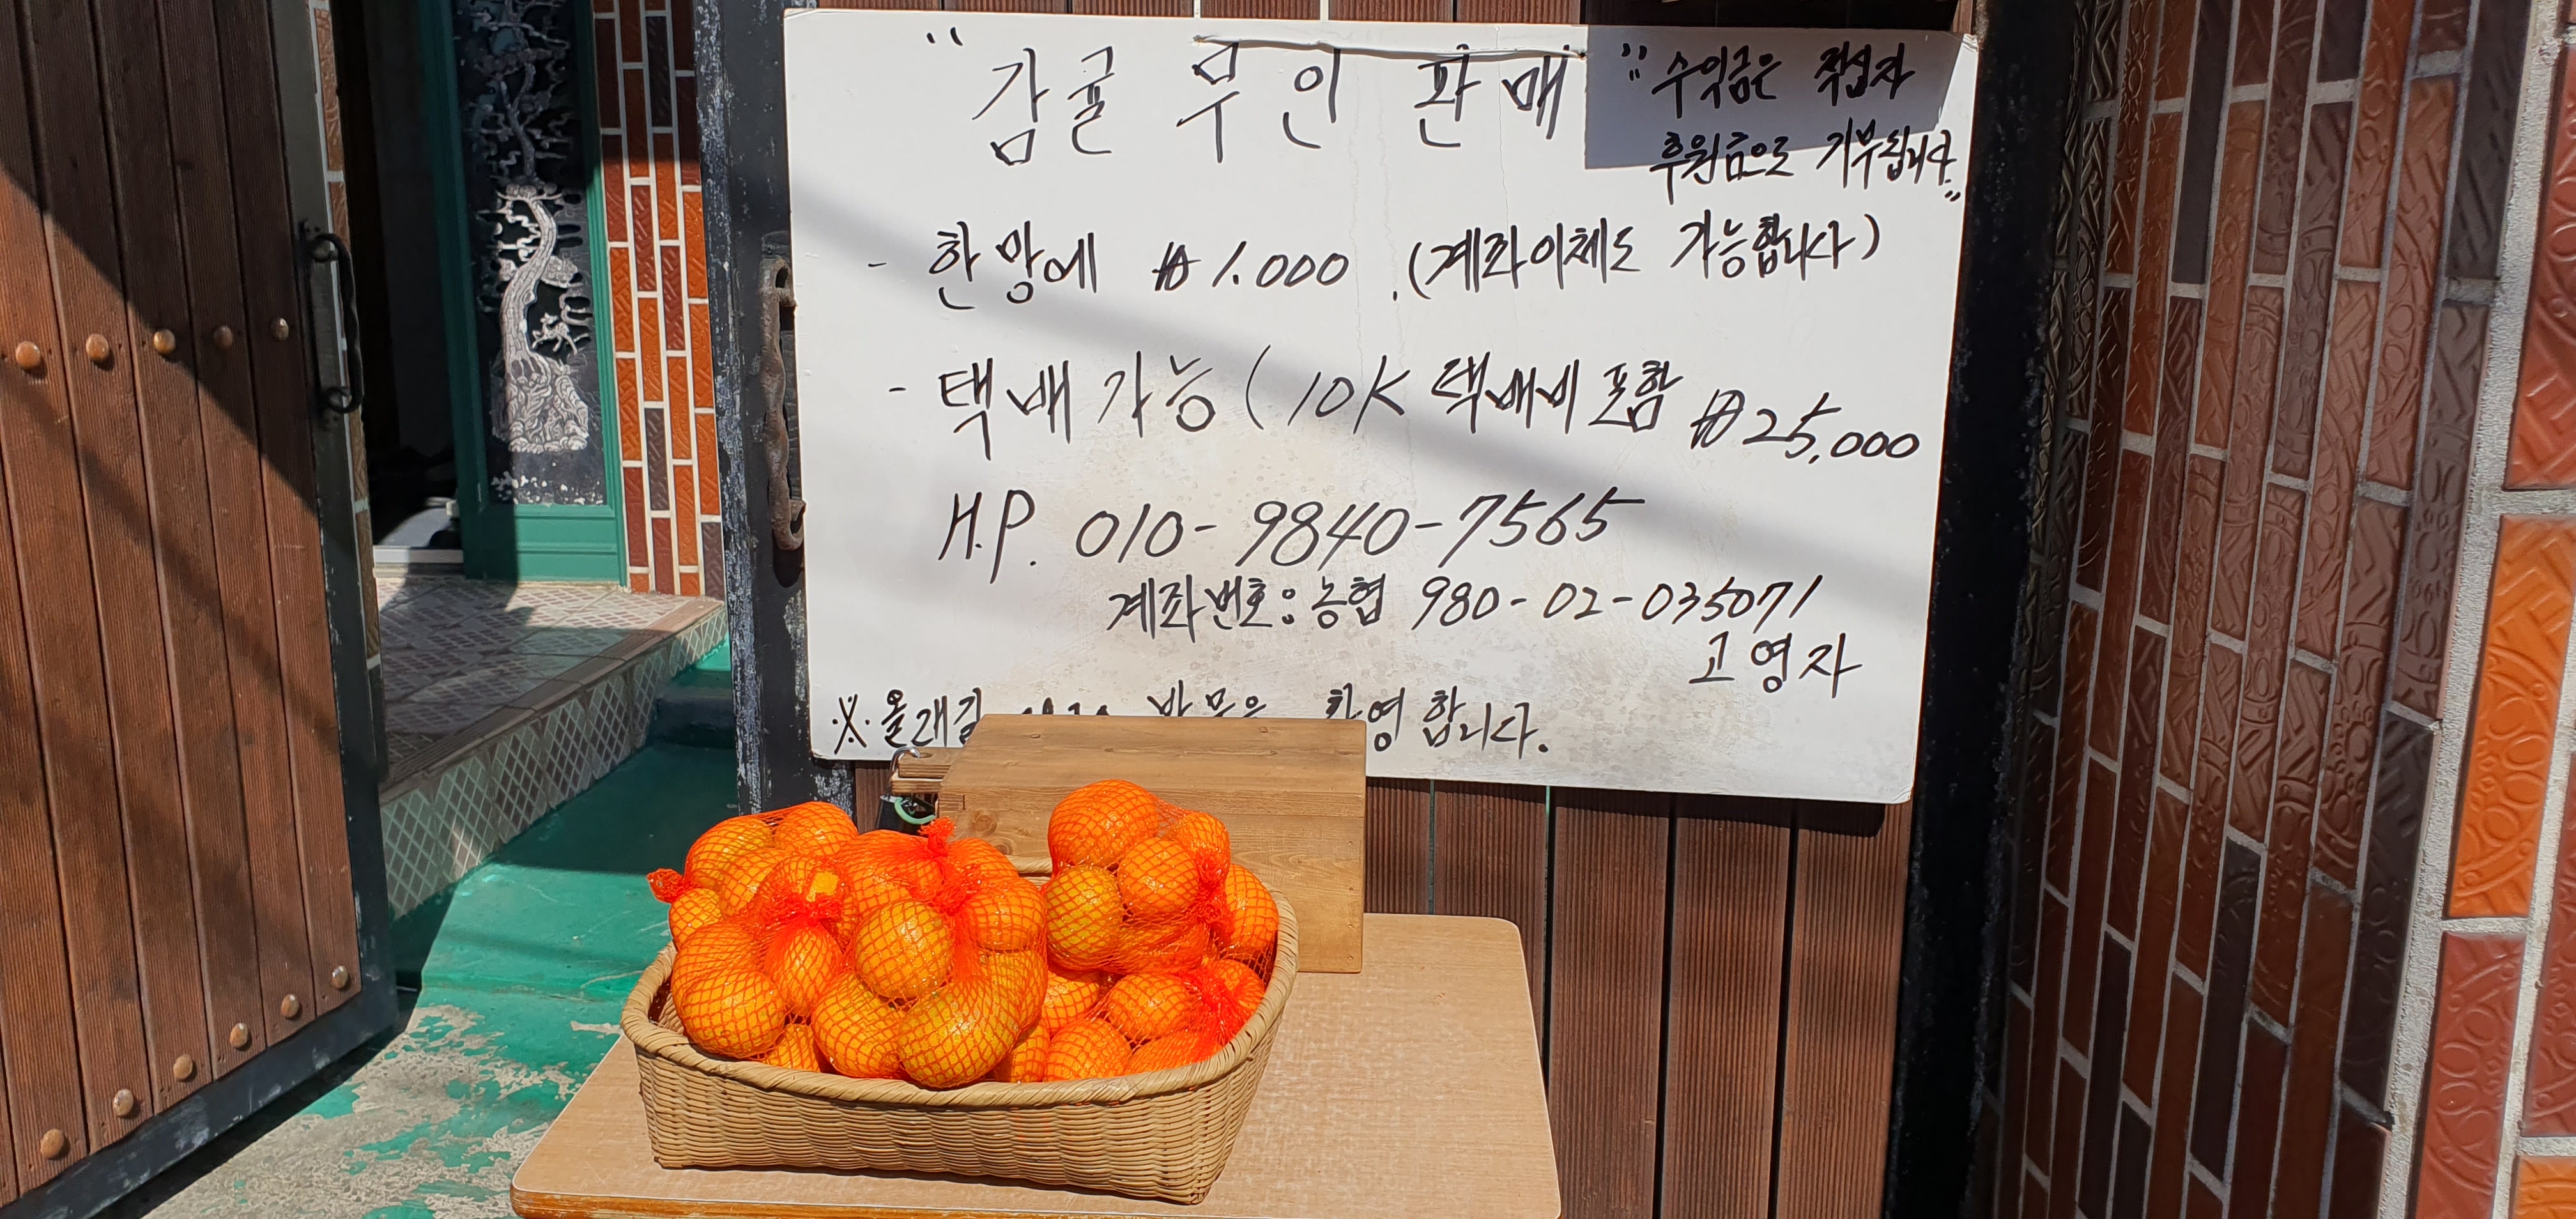 " 감귤 무인 판매
" 수익금은 적십자
후원금으로 기부됩니다. "
- 한망에 ₩1.000 .(계좌이체도 가능합니다)
- 택배 가능 (10K 택배비 포함 ₩25,000
H.P. 010-9840-7565
계좌번호: 농협 980-02-035071
고영자
※ 올래길 방문을 환영합니다.